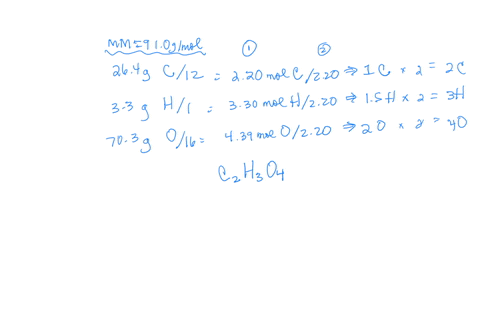 MM=91.0g/mol ① ②
26.4g C/12 = 2.20 mol C/2.20 ⇒ 1C × 2 = 2C
3.3g H/1 = 3.30 mol H/2.20 ⇒ 1.5H × 2 = 3H
70.3g O/16 = 4.39 mol O/2.20 ⇒ 2O × 2 = 4O
C₂H₃O₄